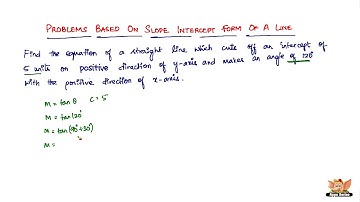 PROBLEMS BASED ON SLOPE INTERCEPT FORM OF A LINE
Find the equation of a straight line which cuts off an intercept of
5 units on positive direction of y-axis and makes an angle of 120°
with the positive direction of x-axis.
M = tan θ C = 5
M = tan 120°
M = tan (90°+30°)
M =